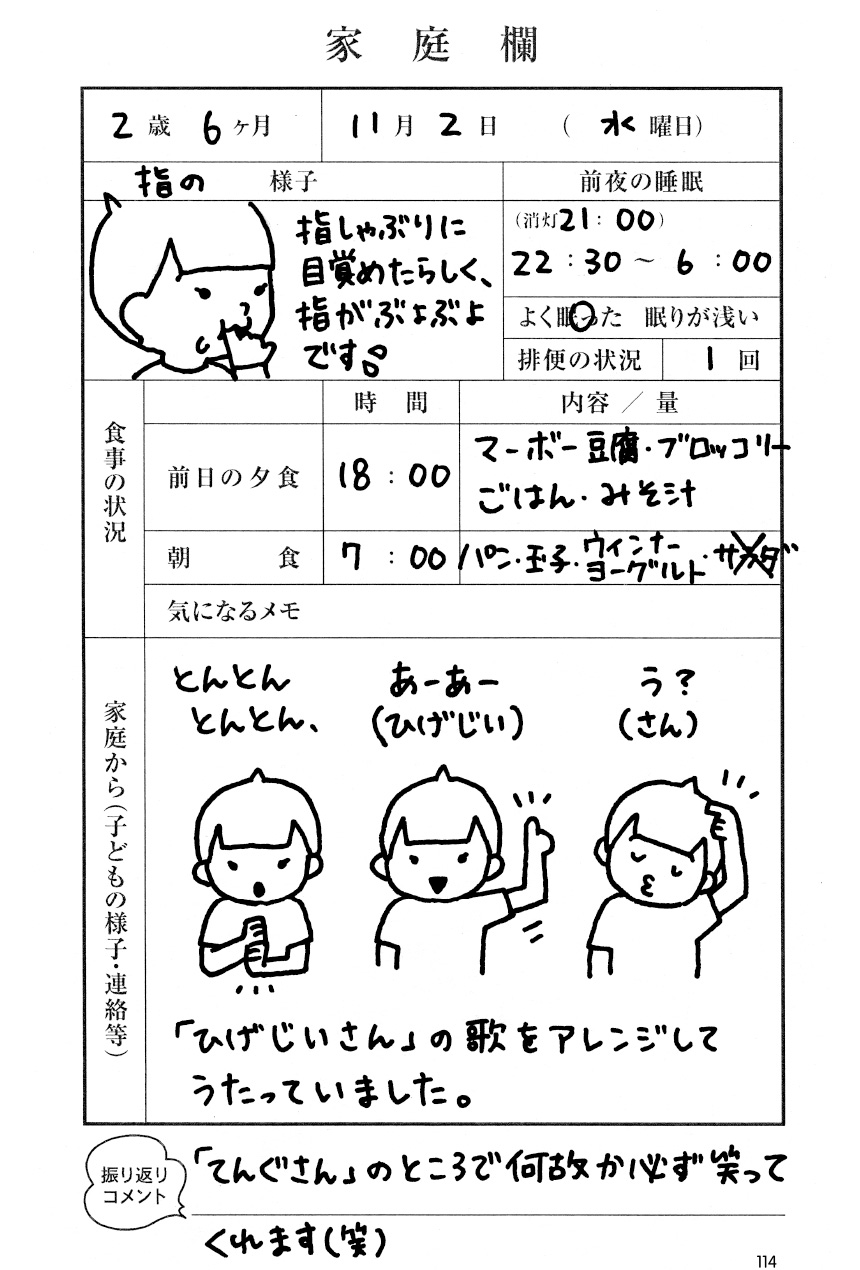 家庭欄
2歳6ヶ月
11月2日(水曜日)
指の様子
前夜の睡眠
指しゃぶりに
目覚めたらしく、
指がぶよぶよ
です。
(消灯21:00)
22:30〜6:00
よく眠った 眠りが浅い
排便の状況 1回
食事の状況
時間 内容/量
前日の夕食 18:00
マーボー豆腐・ブロッコリー
ごはん・みそ汁
朝食 7:00 パン・玉子・ウィンナー
ヨーグルト・サラダ
気になるメモ
家庭から(子どもの様子・連絡等)
とんとん
とんとん、
あーあー
(ひげじい)
う?
(さん)
「ひげじいさん」の歌をアレンジして
うたっていました。
振り返り
コメント
「てんぐさん」のところで何故か必ず笑って
くれます(笑)
114